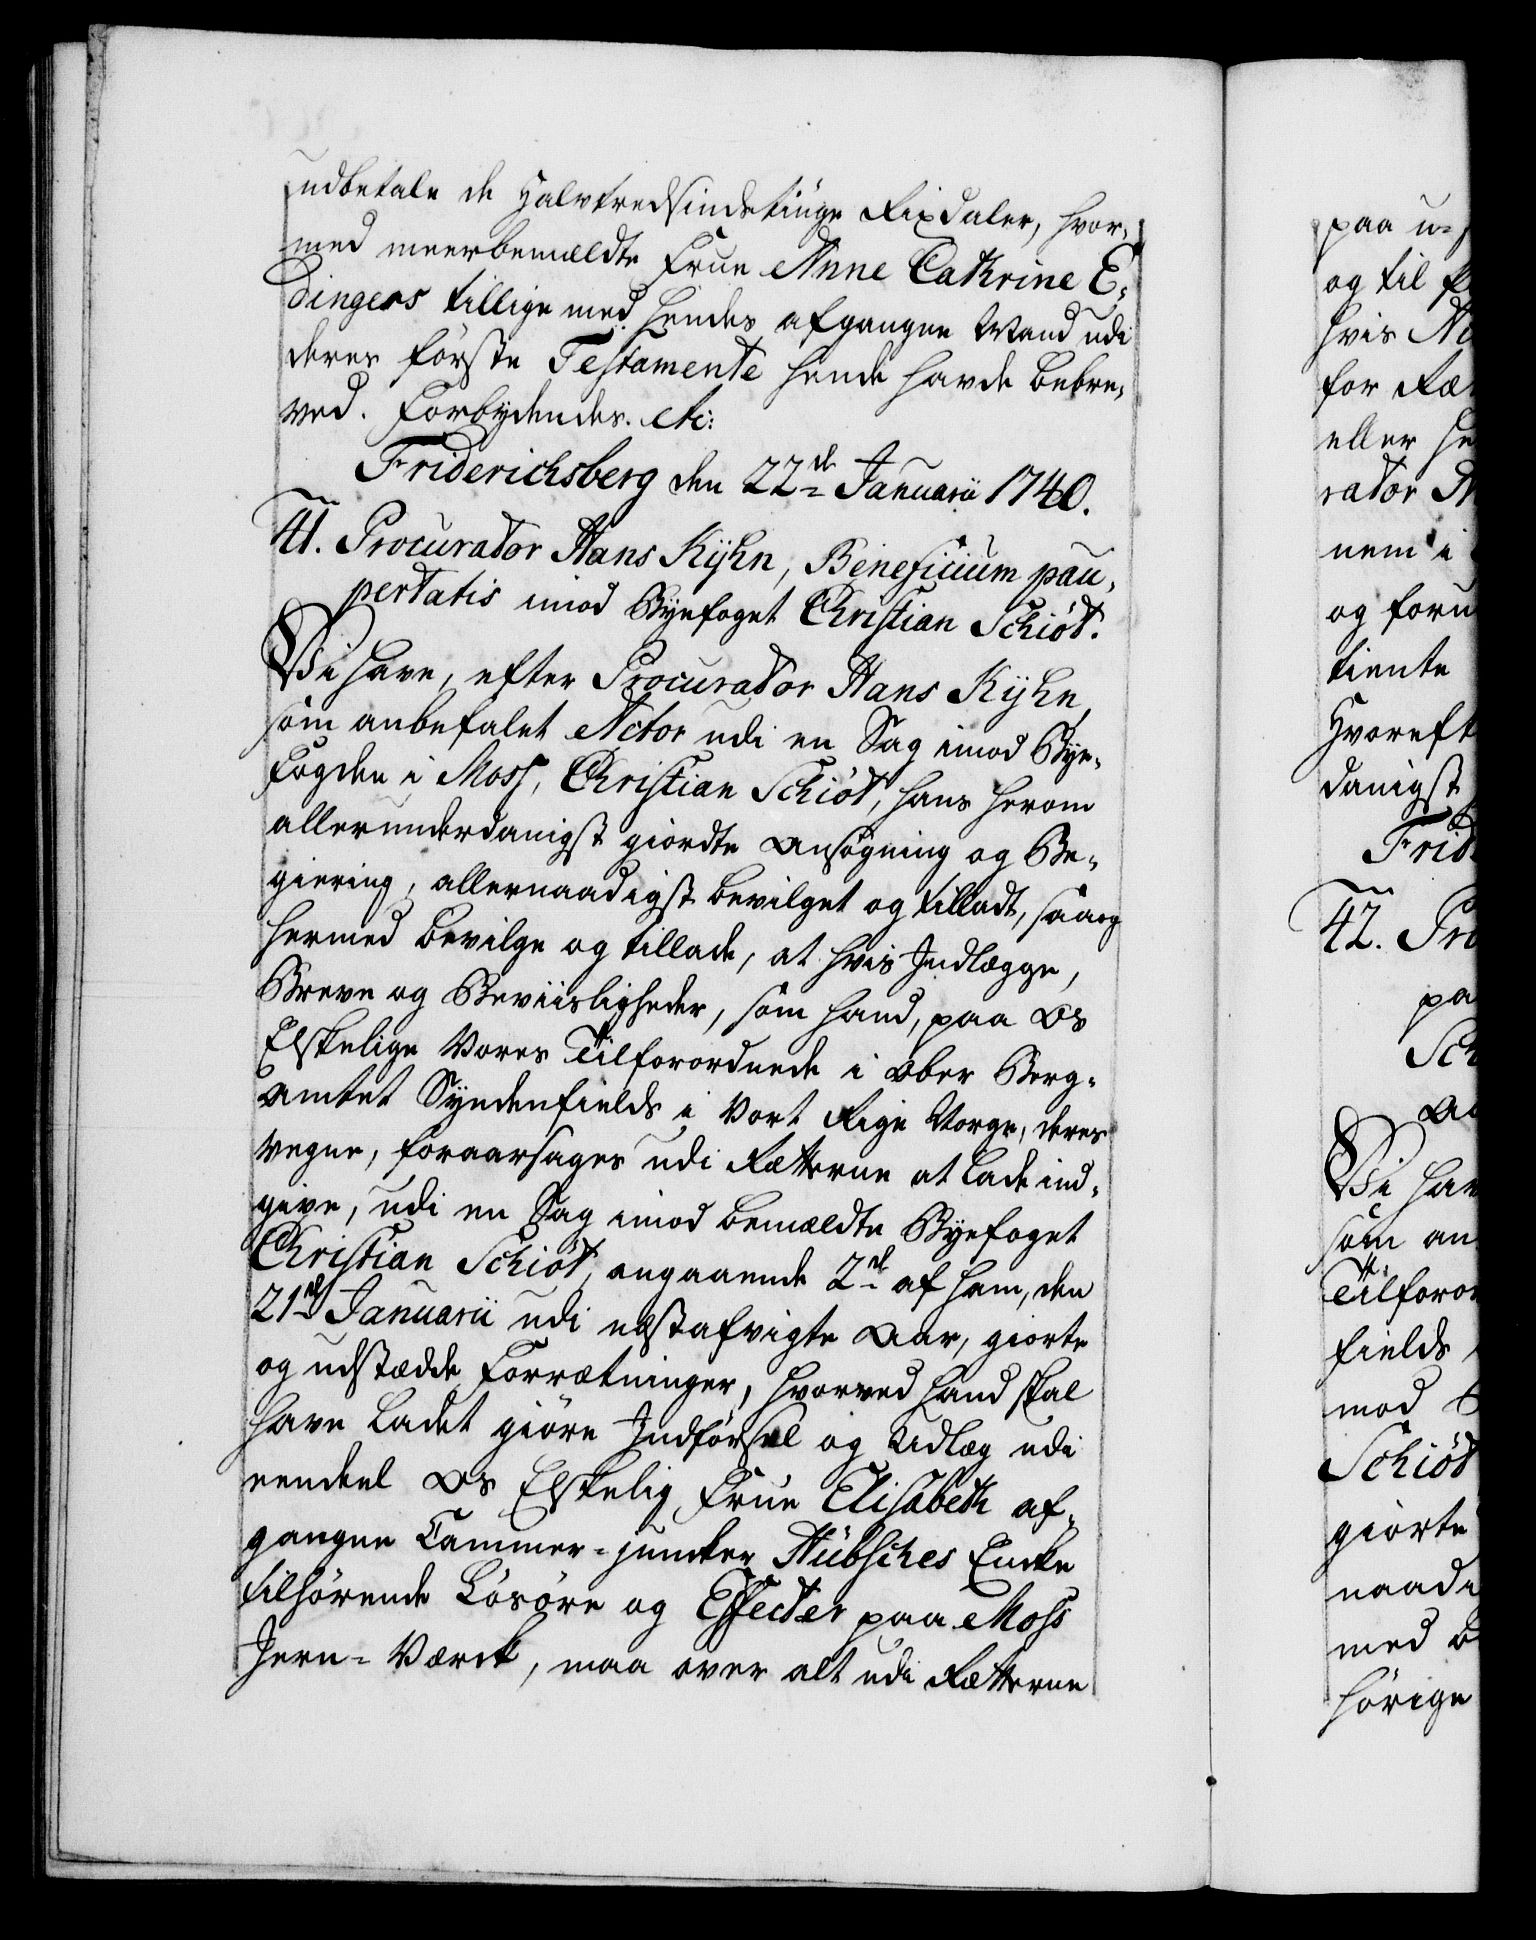 udbetale de Halvtredsindstiuge Rixdaler, hvor-
med meerbemeldte Frue Anne Cathrine E-
dingers tillige med hendes afgangne Mand udi
deres förste Testamente hende havde bebre-
ved. Forbydendes. etc:
Friderichsberg den 22de Januarii 1740.
41. Procurator Hans Kijhn, Beneficium pau-
pertatis imod Byefoget Christian Schiöt.
Vi have, efter Procurator Hans Kijhn,
som anbefalet Actor udi en Sag imod Bye-
fogden i Moss, Christian Schiöt, hans herom
allerunderdanigst giordte Ansögning og Be-
giering, allernaadigst bevilget og tilladt, saa og
hermed bevilge og tillade, at hvis Indlægge,
Breve og Beviisligheder, som hand, paa Os
Elskelige Vores Tilforordnede i Ober Berg-
Amtet Syndenfields i Vort Rige Norge, deres
vegne, foraarsages udi Rætterne at lade ind-
give, udi en Sag imod bemældte Byefoget
Christian Schiöt, angaaende 2de af ham, den
21de Januarii udi nestafvigte Aar, giorte
og udstædde Forrætninger, hvorved hand skal
have ladet giöre Indförsel og Udlæg udi
eendeel Os Elskelig Frue Elisabeth af-
gangne Cammer-junker Hübsches Encke
tilhörende Lösöre og Effecter paa Moss
Jern-Værck, maa over alt udi Rætterne
paa u-
og til
hvis
for Ræ
eller he
rator
nem i
og foru
tiente
Hvoreft
danigst
Frid
42. Pro
pa
Sch
Vi hav
som an
Tilforor
fields
mod
Schiöt
giorte
naadi
med
hörige